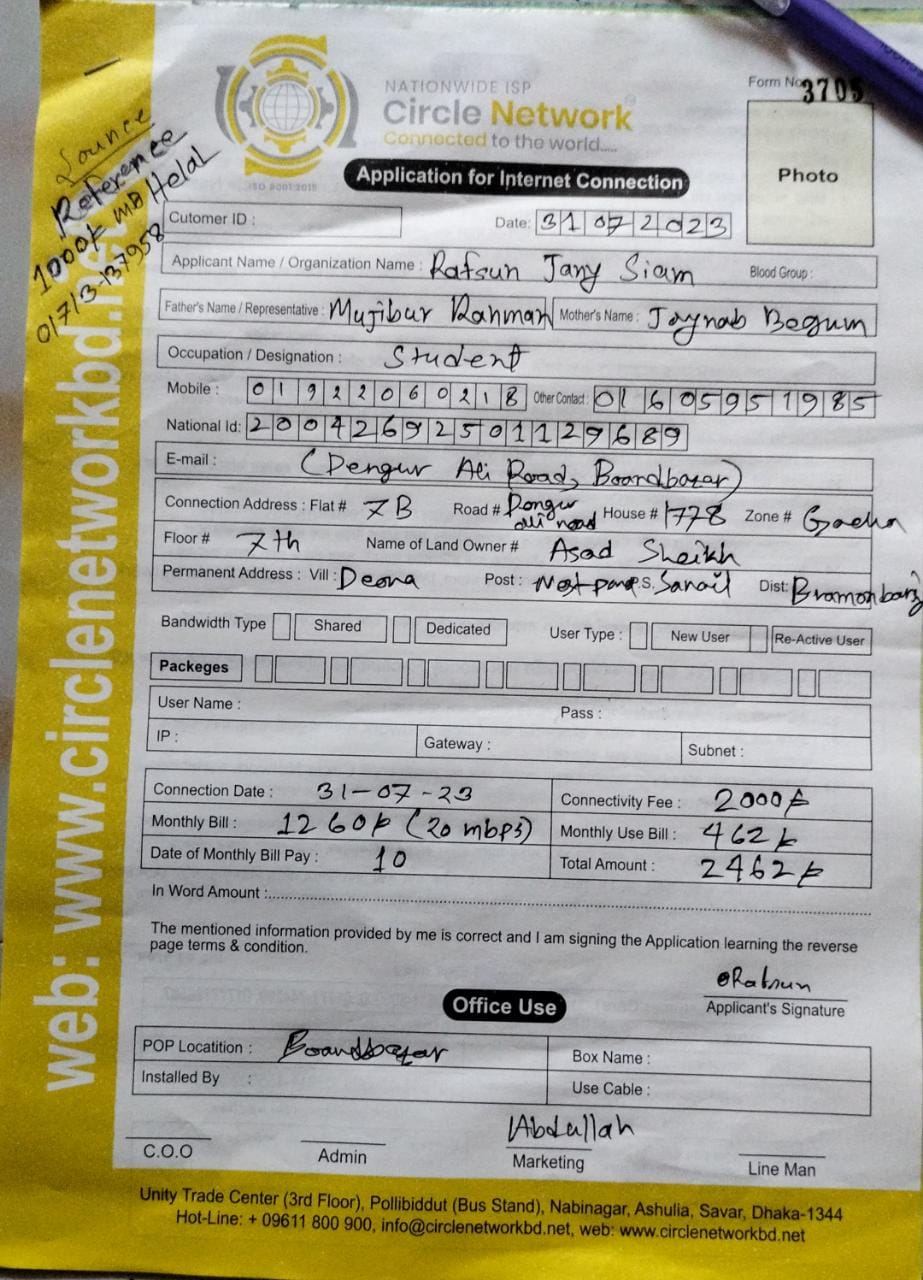 NATIONWIDE ISP
Circle Network
Connected to the world.....
ISO 9001:2015
Form No 3705
Photo
Application for Internet Connection
Source
Reference
1000/- MB Helal
01713-137958
Cutomer ID :
Date: 31072023
Applicant Name / Organization Name : Rafsun Jany Siam Blood Group :
Father's Name / Representative : Mujibur Rahman Mother's Name : Jaynab Begum
Occupation / Designation : Student
Mobile : 01922060218 Other Contact : 01605951985
National Id: 20042692501129689
E-mail : (Dengur Ali Road, Boardbazar)
Connection Address : Flat # 7B Road # Dengur Ali road House # 1778 Zone # Gacha
Floor # 7th Name of Land Owner # Asad Sheikh
Permanent Address : Vill : Deora Post : P.S. Sarail Dist: Bramonbari
Bandwidth Type Shared Dedicated User Type : New User Re-Active User
Packeges
User Name : Pass :
IP : Gateway : Subnet :
Connection Date : 31-07-23 Connectivity Fee : 2000/-
Monthly Bill : 1260/- (20 mbps) Monthly Use Bill : 462/-
Date of Monthly Bill Pay : 10 Total Amount : 2462/-
In Word Amount :
The mentioned information provided by me is correct and I am signing the Application learning the reverse
page terms & condition.
Rafsun
Applicant's Signature
Office Use
POP Locatition : Boardbazar Box Name :
Installed By : Use Cable :
Abdullah
C.O.O Admin Marketing Line Man
Unity Trade Center (3rd Floor), Pollibiddut (Bus Stand), Nabinagar, Ashulia, Savar, Dhaka-1344
Hot-Line: + 09611 800 900, info@circlenetworkbd.net, web: www.circlenetworkbd.net
web: www.circlenetworkbd.net